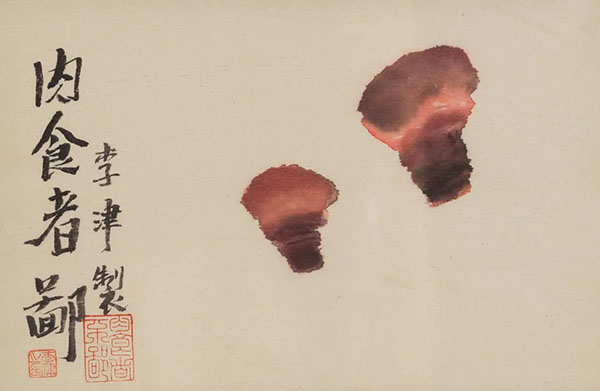 肉食者鄙
李津製